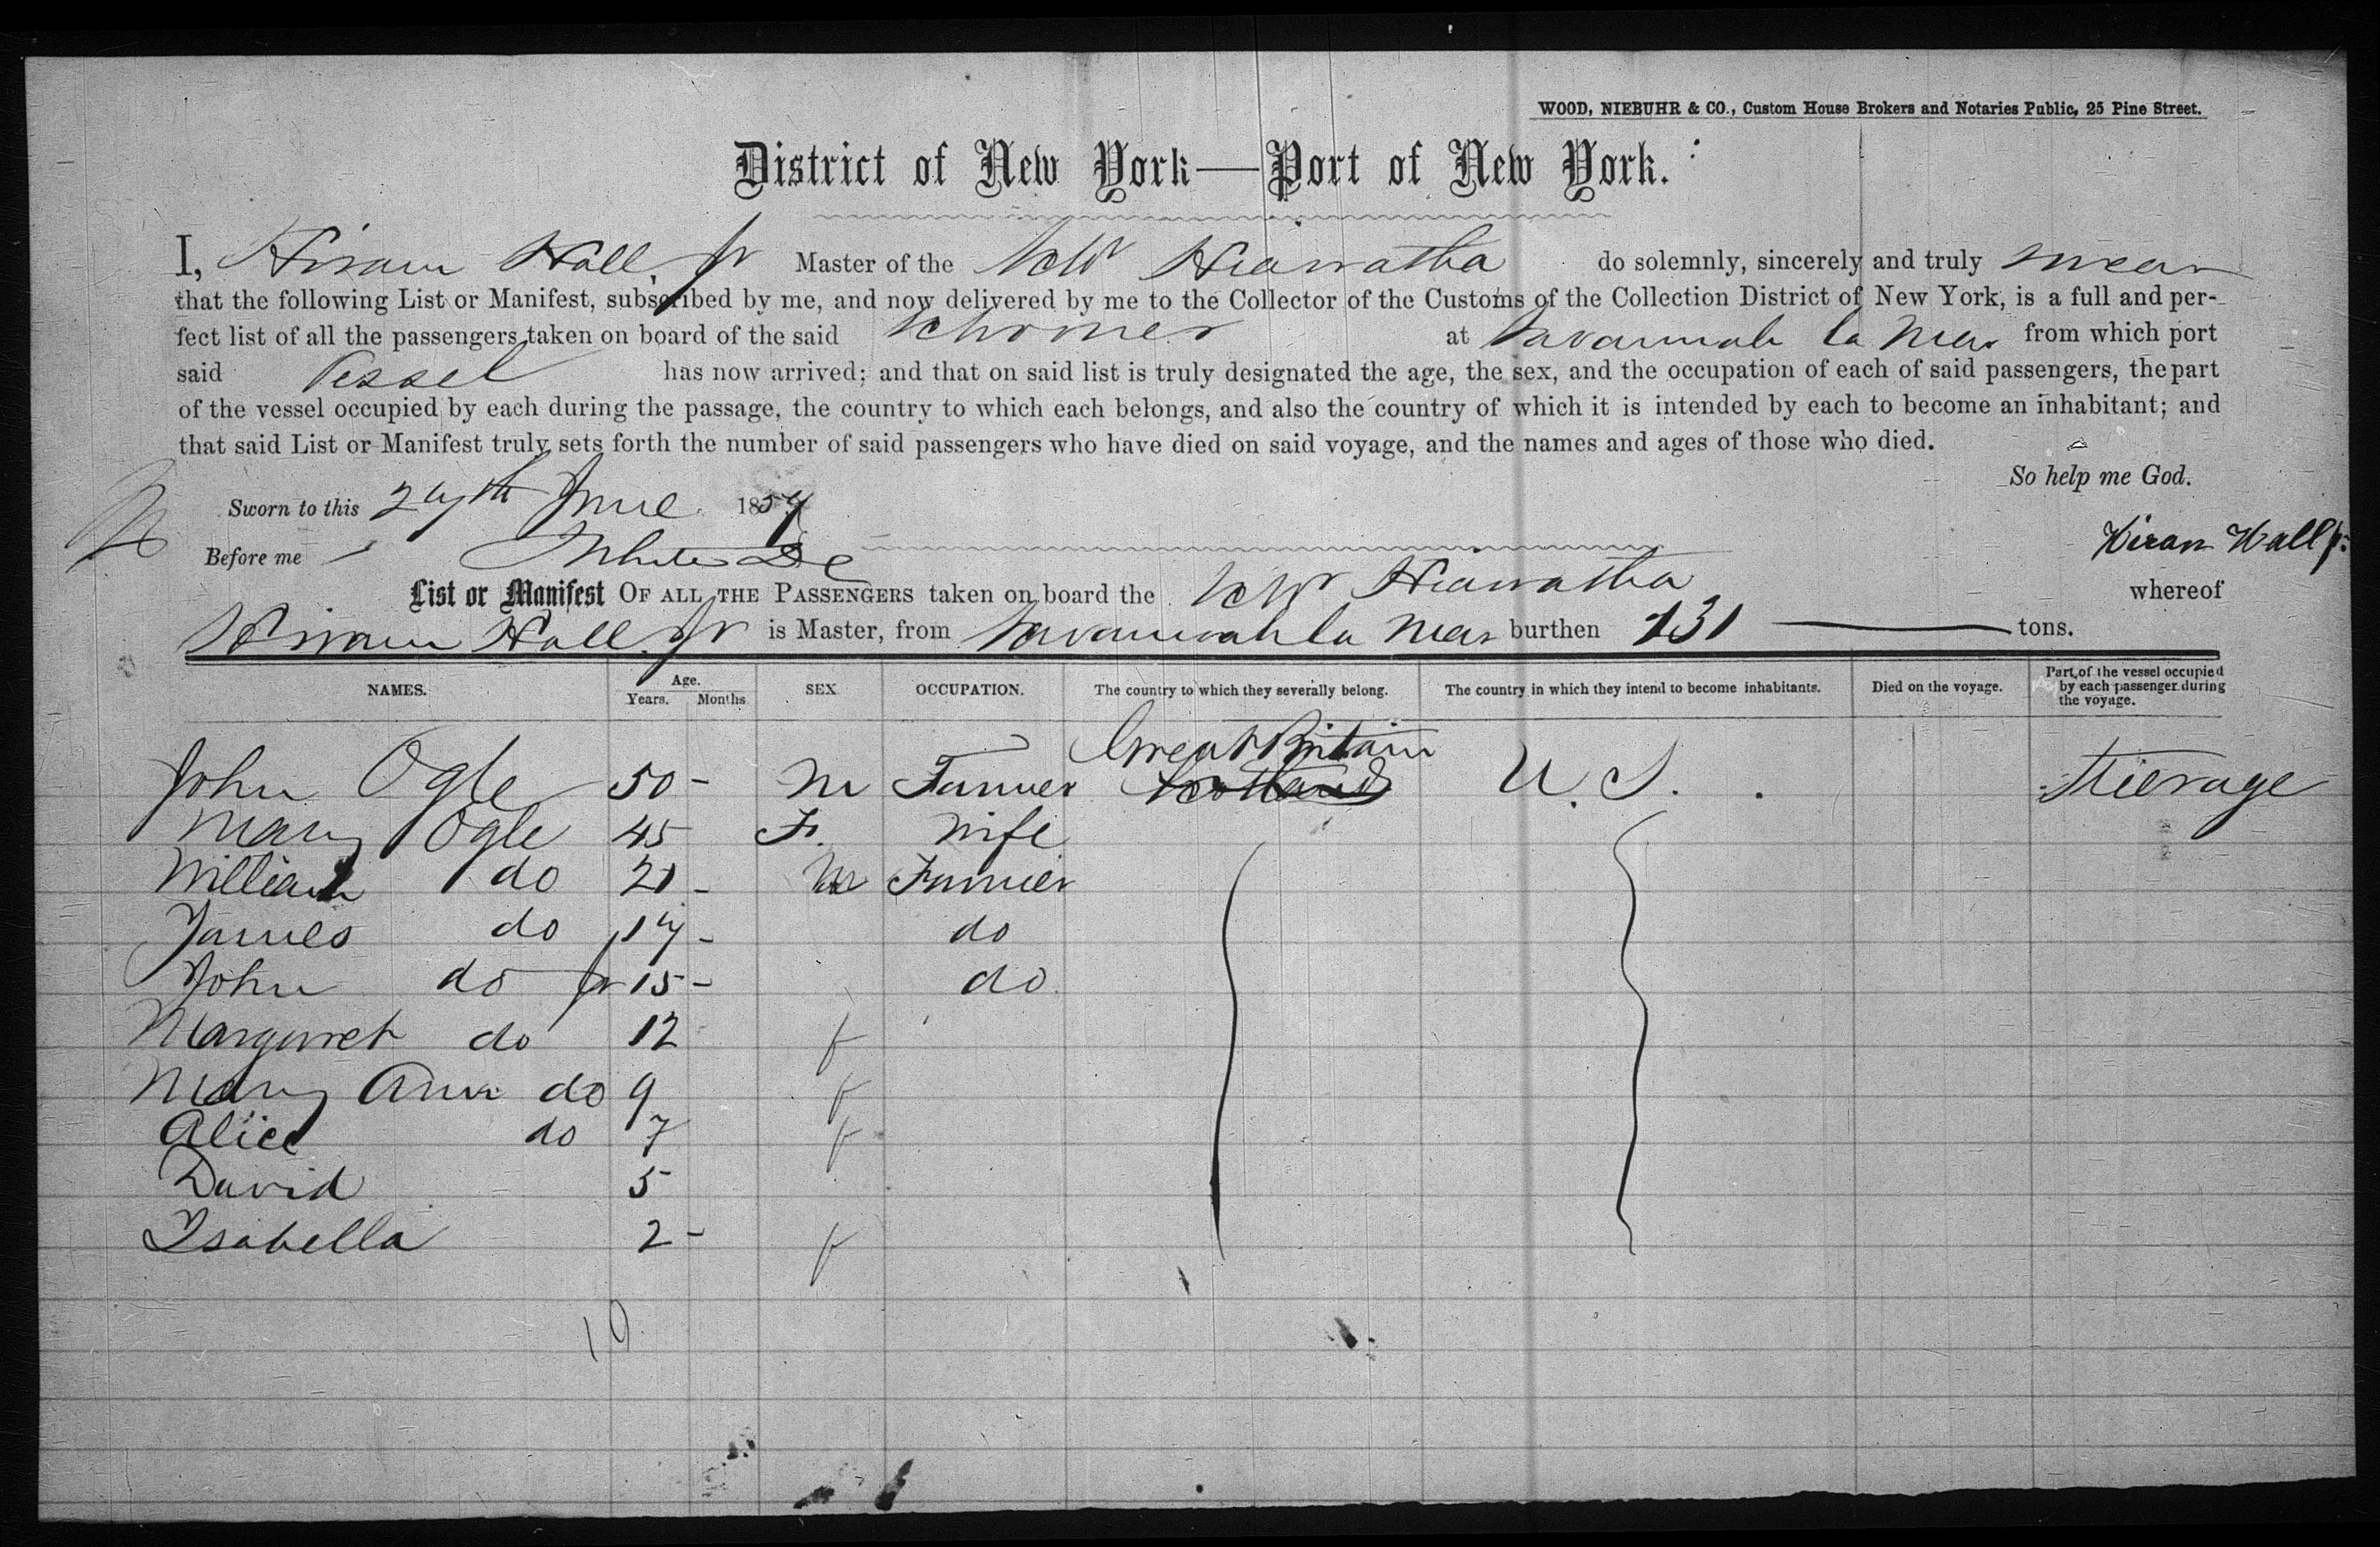 WOOD, NIEBUHR & CO., Custom House Brokers and Notaries Public, 25 Pine Street.
District of New York—Port of New York.
I, Hiram Hall Jr Master of the Schr Hiawatha do solemnly, sincerely and truly swear
that the following List or Manifest, subscribed by me, and now delivered by me to the Collector of the Customs of the Collection District of New York, is a full and per-
fect list of all the passengers taken on board of the said Schooner at Savannah la Mar from which port
said Vessel has now arrived; and that on said list is truly designated the age, the sex, and the occupation of each of said passengers, the part
of the vessel occupied by each during the passage, the country to which each belongs, and also the country of which it is intended by each to become an inhabitant; and
that said List or Manifest truly sets forth the number of said passengers who have died on said voyage, and the names and ages of those who died.
So help me God.
Sworn to this 27th June 1857
Hiram Hall Jr.
Before me
List or Manifest OF ALL THE PASSENGERS taken on board the Schr Hiawatha whereof
Hiram Hall Jr is Master, from Savannah la Mar burthen 131 tons.
NAMES. Age. Years. Months SEX OCCUPATION. The country to which they severally belong. The country in which they intend to become inhabitants. Died on the voyage. Part of the vessel occupied by each passenger during the voyage.
Great Britain
John Ogle 50 - M Farmer Scotland U.S. Steerage
Mary Ogle 45 F. Wife
William do 21 - M Farmer
James do 17 - do
John do Jr 15 - do
Margaret do 12 f
Mary Ann do 9 f
Alice do 7 f
David 5
Isabella 2 - f
10